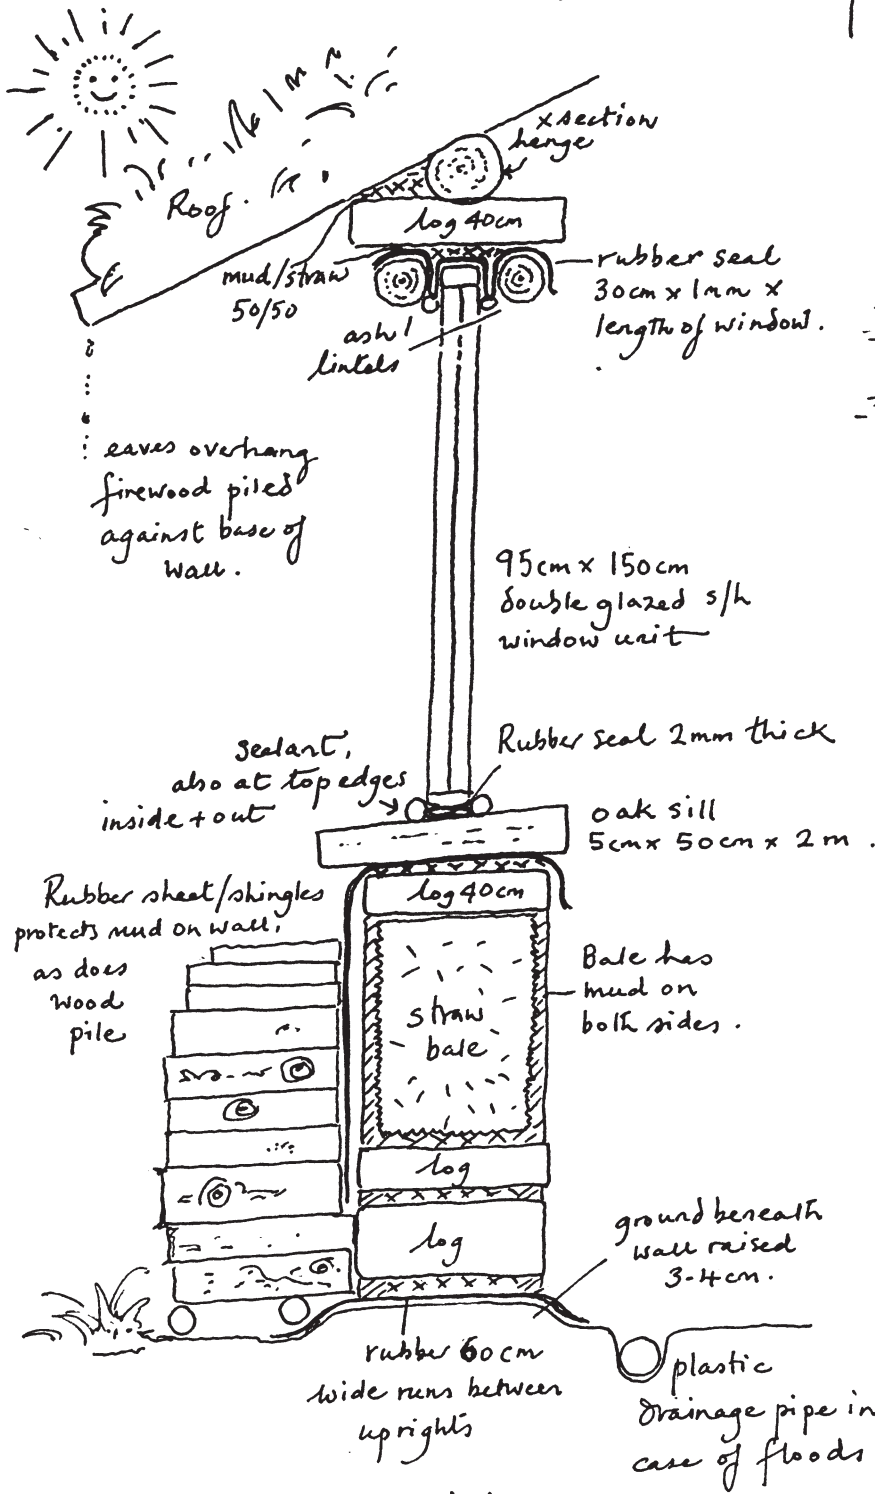 x section
henge
Roof.
log 40cm
mud/straw
50/50
rubber seal
30cm x 1mm x
length of window.
ash
lintels
eaves overhang
firewood piled
against base of
wall.
95cm x 150cm
double glazed s/h
window unit
sealant,
also at top edges
inside + out
Rubber seal 2mm thick
oak sill
5cm x 50cm x 2m.
Rubber sheet/shingles
protects mud on wall,
as does
wood
pile
log 40cm
straw
bale
Bale has
mud on
both sides.
log
log
ground beneath
wall raised
3-4cm.
rubber 60cm
wide runs between
uprights
plastic
drainage pipe in
case of floods